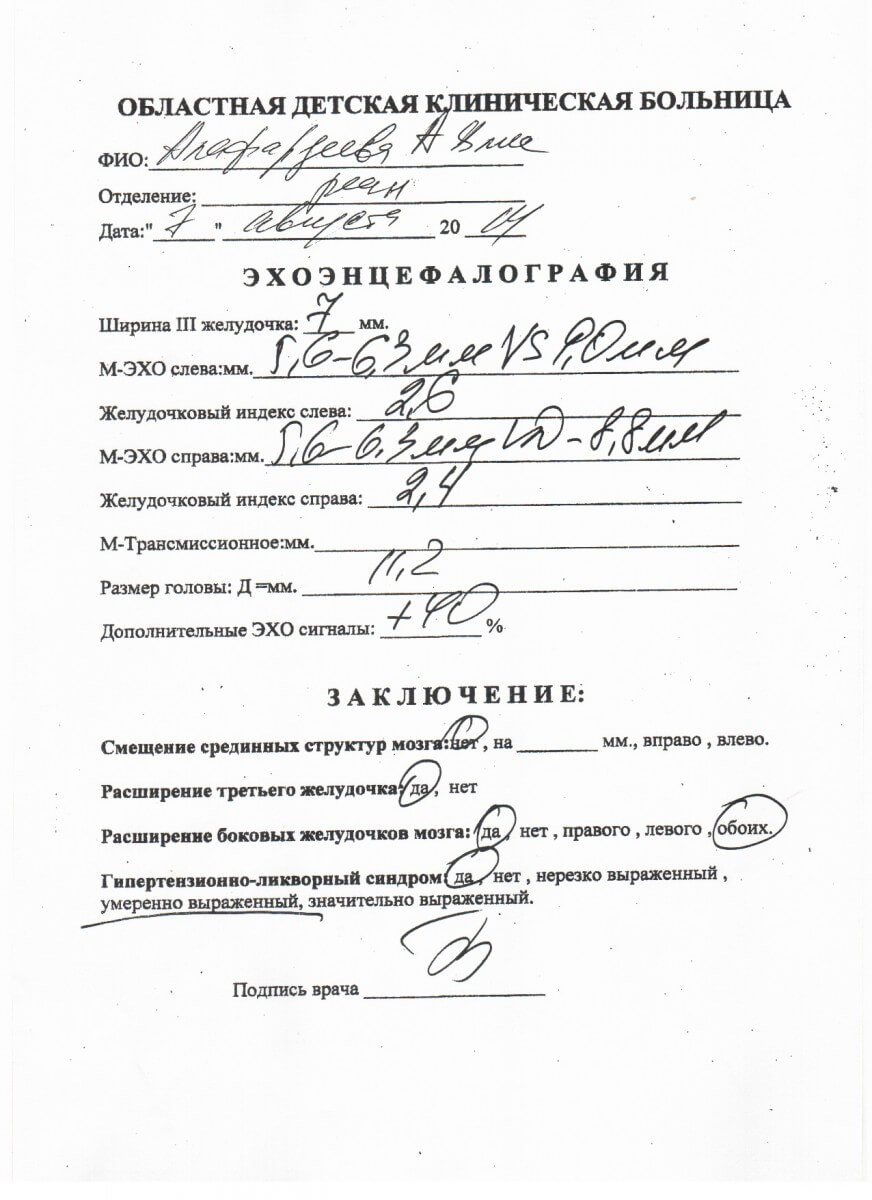 ОБЛАСТНАЯ ДЕТСКАЯ КЛИНИЧЕСКАЯ БОЛЬНИЦА
ФИО:
Отделение: реан
Дата:" 7 " августа 20
ЭХОЭНЦЕФАЛОГРАФИЯ
Ширина III желудочка: 7 мм.
М-ЭХО слева:мм. 5,6-6,3мм VS 9,0мм
Желудочковый индекс слева: 2,6
М-ЭХО справа:мм. 5,6-6,3мм VD-8,8мм
Желудочковый индекс справа: 2,4
М-Трансмиссионное:мм.
Размер головы: Д =мм. 11,2
Дополнительные ЭХО сигналы: +40 %
ЗАКЛЮЧЕНИЕ:
Смещение срединных структур мозга:нет , на ________ мм., вправо , влево.
Расширение третьего желудочка: да , нет
Расширение боковых желудочков мозга: да , нет , правого , левого , обоих.
Гипертензионно-ликворный синдром: да , нет , нерезко выраженный ,
умеренно выраженный, значительно выраженный.
Подпись врача